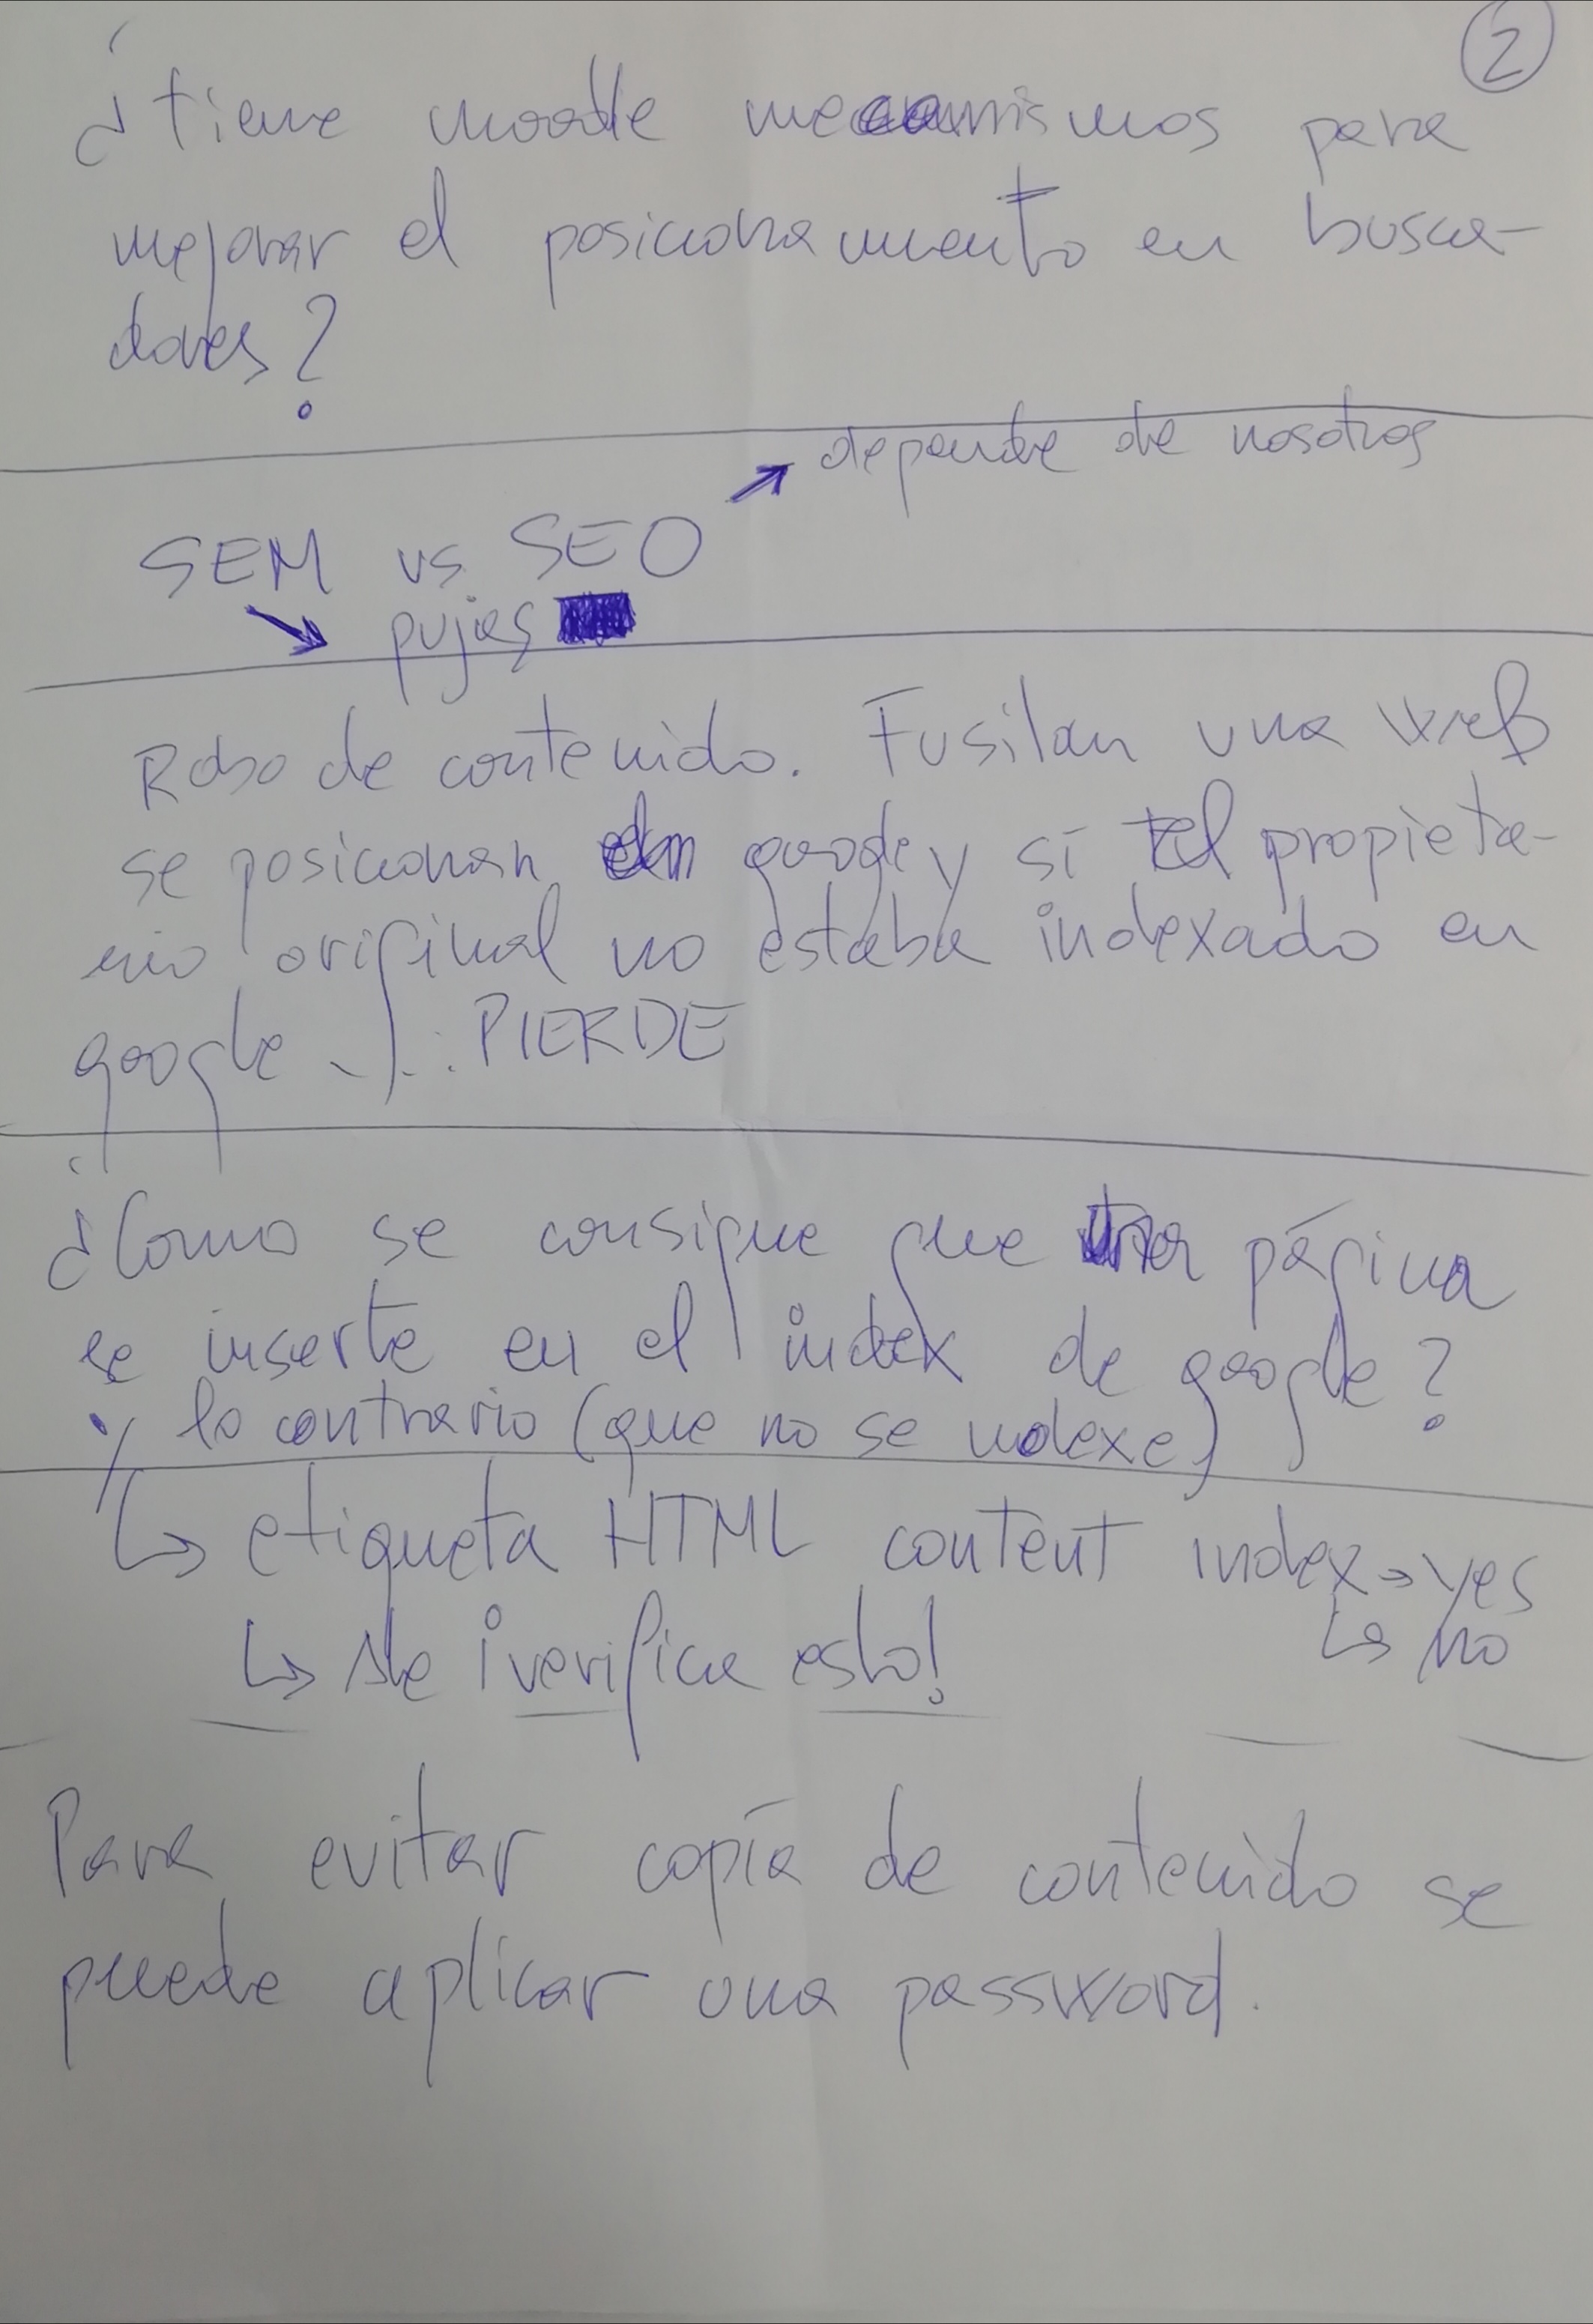 2
¿tiene moodle mecanismos para
mejorar el posicionamiento en busca-
dores?
depende de nosotros
SEM vs SEO
pujas
Robo de contenido. Fusilan una web
se posicionan en google y si el propieta-
rio original no estaba indexado en
google ∴ PIERDE
¿Como se consigue que una página
se inserte en el index de google?
y lo contrario (que no se indexe)
↳ etiqueta HTML content index → yes
↳ no
↳ ¡verifica esto!
Para evitar copía de contenido se
puede aplicar una password.